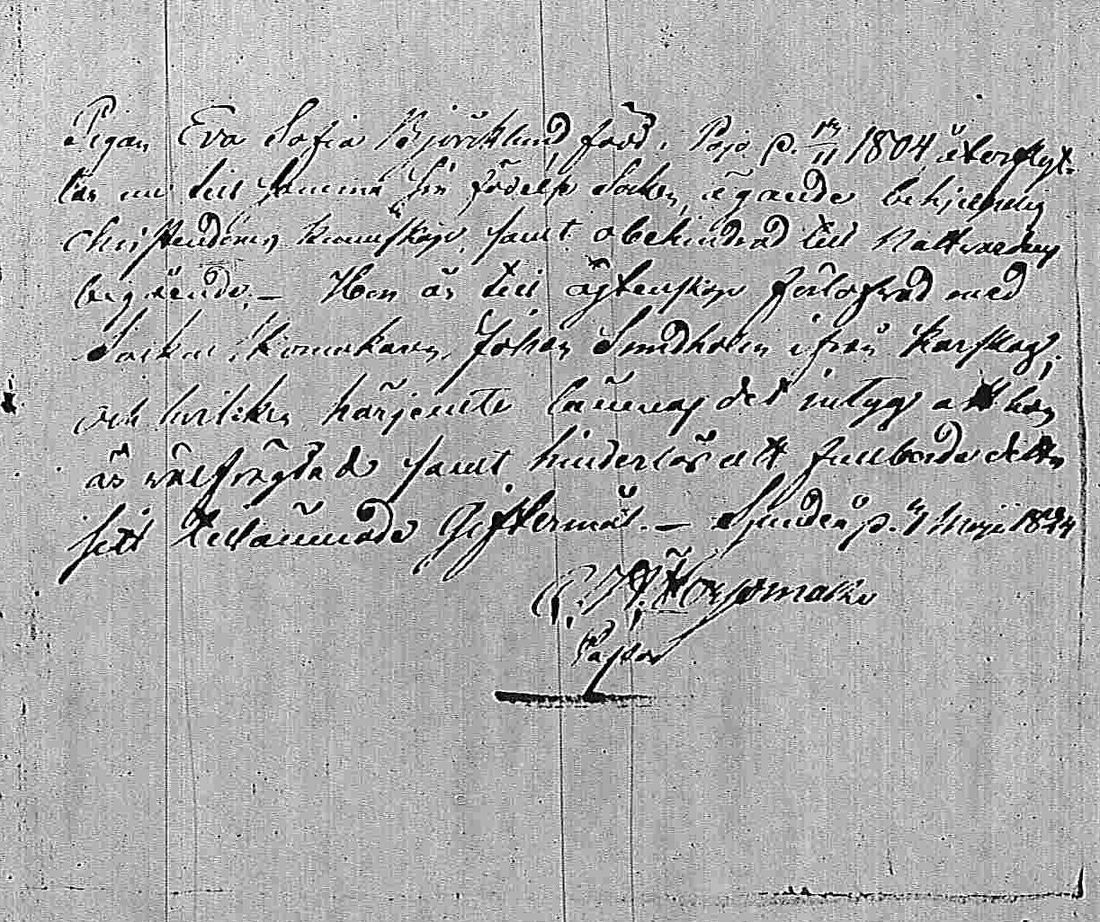 Pigan Eva Sofia Björklund, född i Pojo p. 11 1804 återflyt-
tar nu till samma sin födelse Socken, ägande behjelplig
christendoms kunnskap, samt obehindrad till Nattvardens
begående. — Hon är till ägtenskap förlofvad med
Socken Skomakaren Johan Sundholm ifrån Karskog,
och hvilken härjemte lämnas det intyg att hon
är välfrägdad samt hinderlös att fullborda detta
sitt tillämnade Giftermål. — Sjundeå p. Maji 1844
Pastor